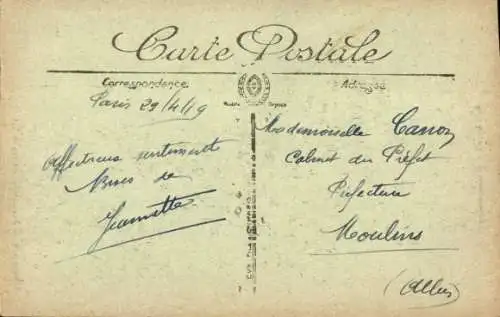 Carte Postale
Correspondance
Adresse
Paris 29/4/19
Affectueux sentiments
Bises de
Jeannette
Mademoiselle Canon
Cabinet du Préfet
Préfecture
Moulins
(Allier)